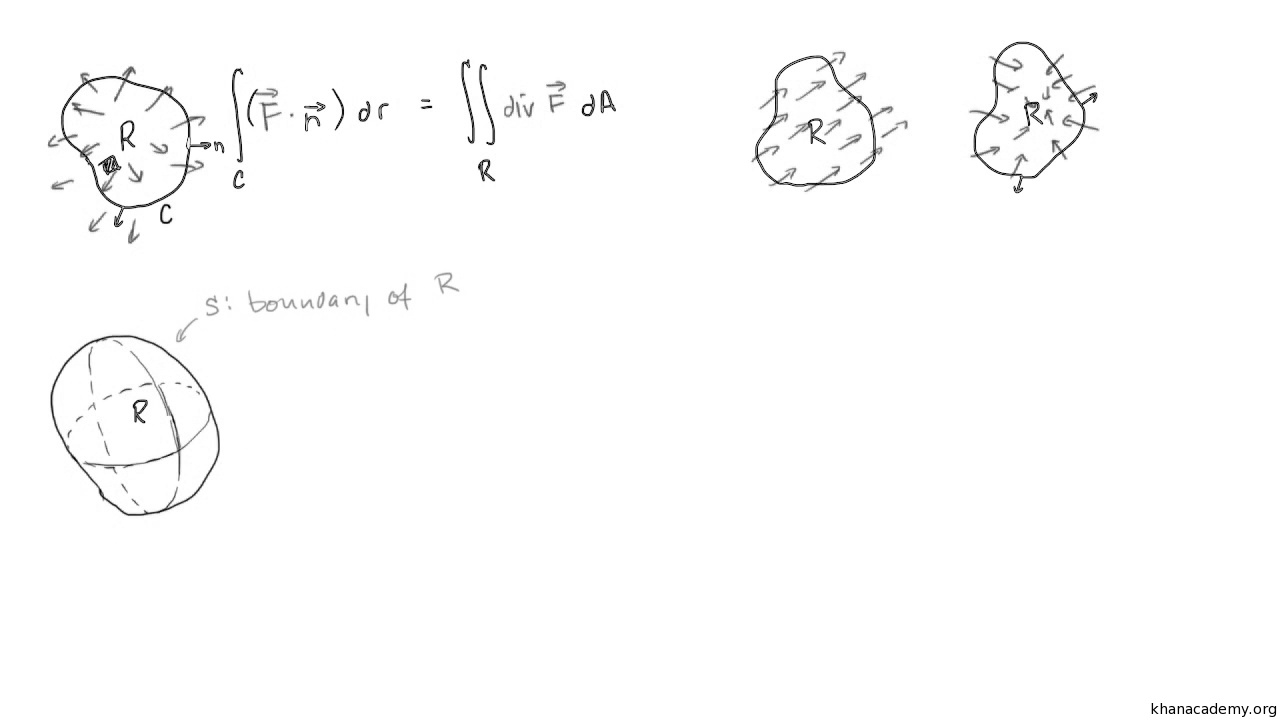 R
n
C
∫ (F⃗ · n⃗) dr = ∬ div F⃗ dA
C R
R
R
S: boundary of R
R
khanacademy.org